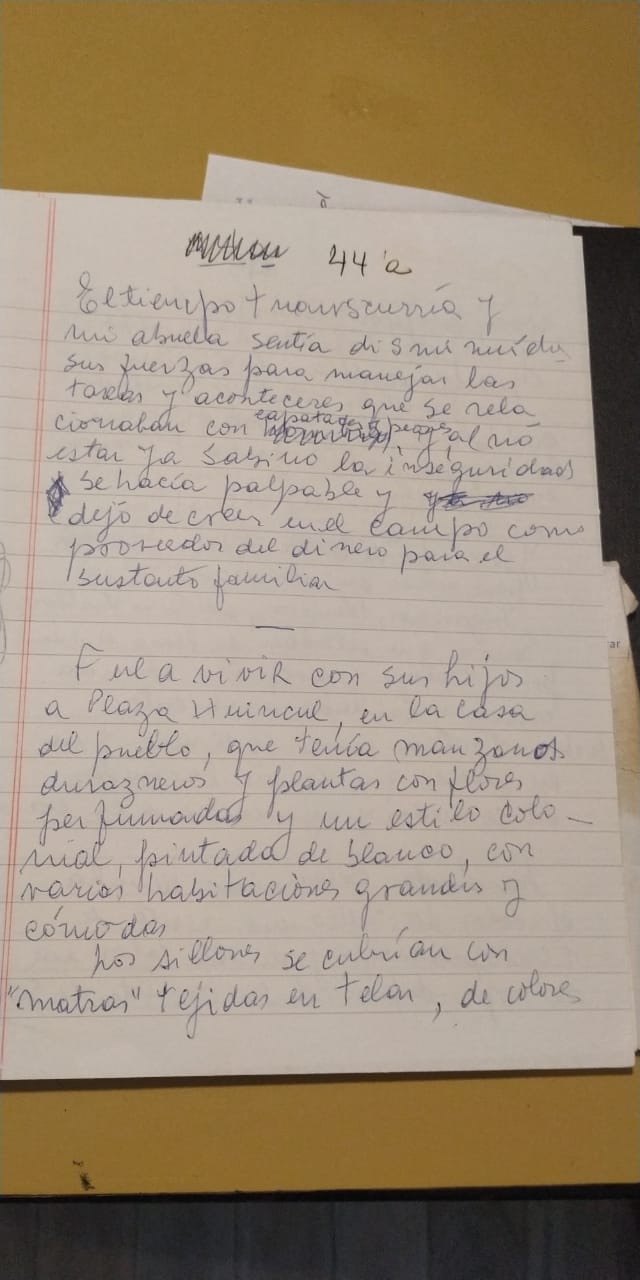 44 'a
El tiempo transcurría y
mi abuela sentía disminuída
sus fuerzas para manejar las
tareas y aconteceres que se rela
cionaban con capataces peones y al no
estar ya Sabino la inseguridad
se hacía palpable y
dejó de creer en el campo como
proveedor del dinero para el
sustento familiar
—
Fue a vivir con sus hijos
a Plaza Huincul, en la casa
del pueblo, que tenía manzanos
durazneros y plantas con flores
perfumadas y un estilo colo-
nial, pintada de blanco, con
varias habitaciones grandes y
cómodas
Los sillones se cubrían con
"matras" tejidas en telar, de colores